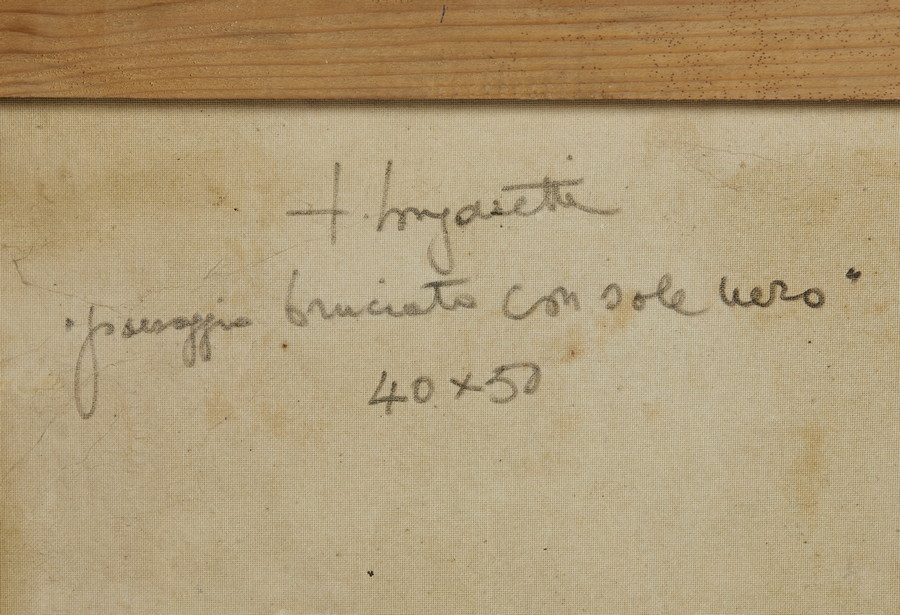 t. longaretti
"paesaggio bruciato con sole nero"
40x50